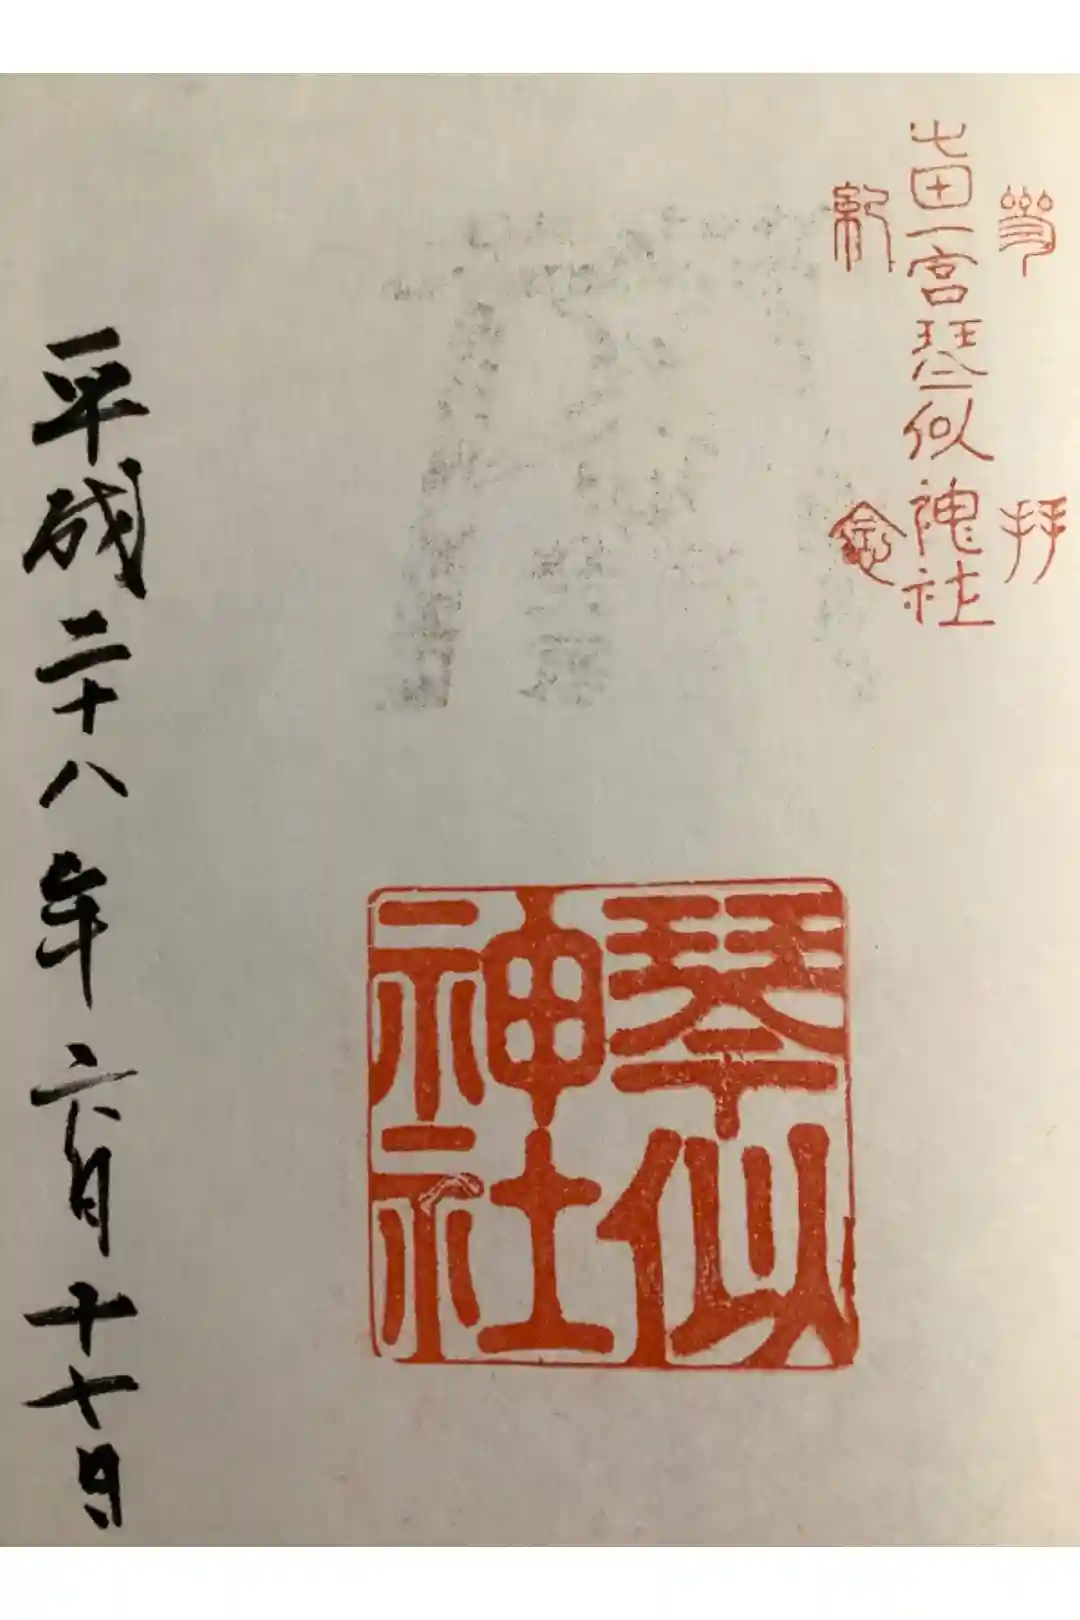 参拝
屯田一宮琴似神社
紀念
琴似
神社
平成二十八年六月十七日